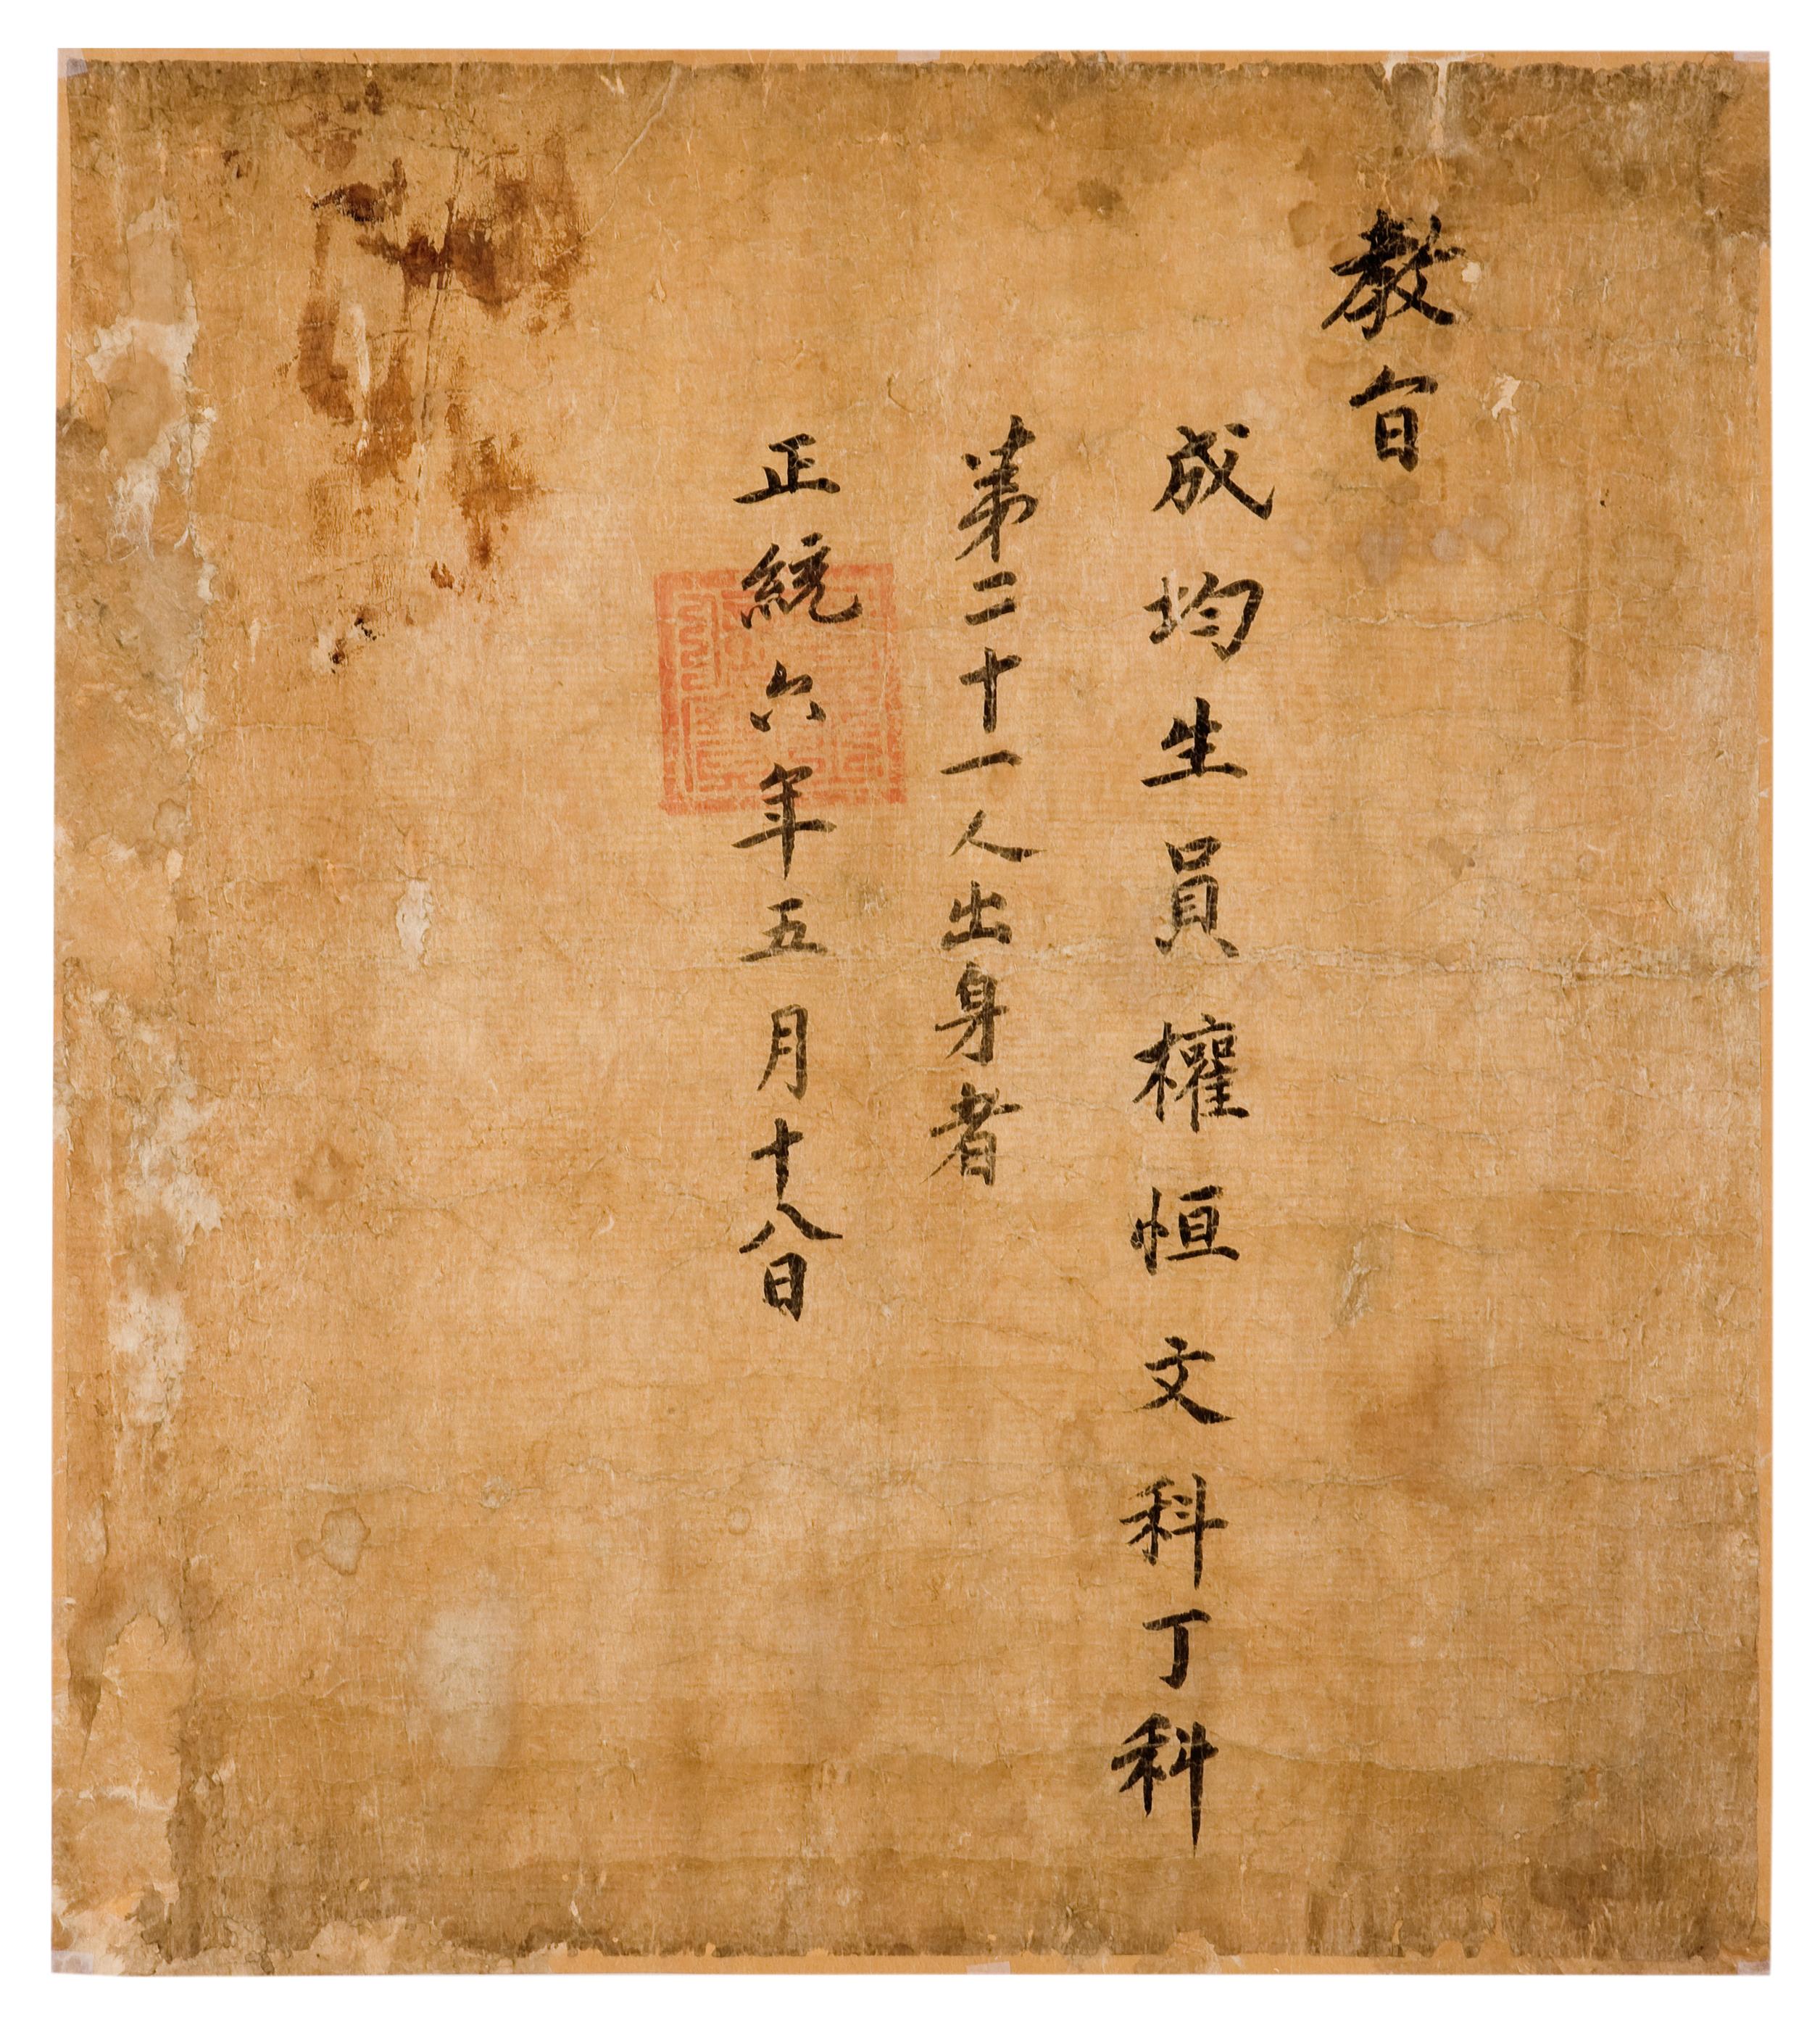 敎旨
成均生員權恒文科丁科
第二十一人出身者
正統六年五月十八日